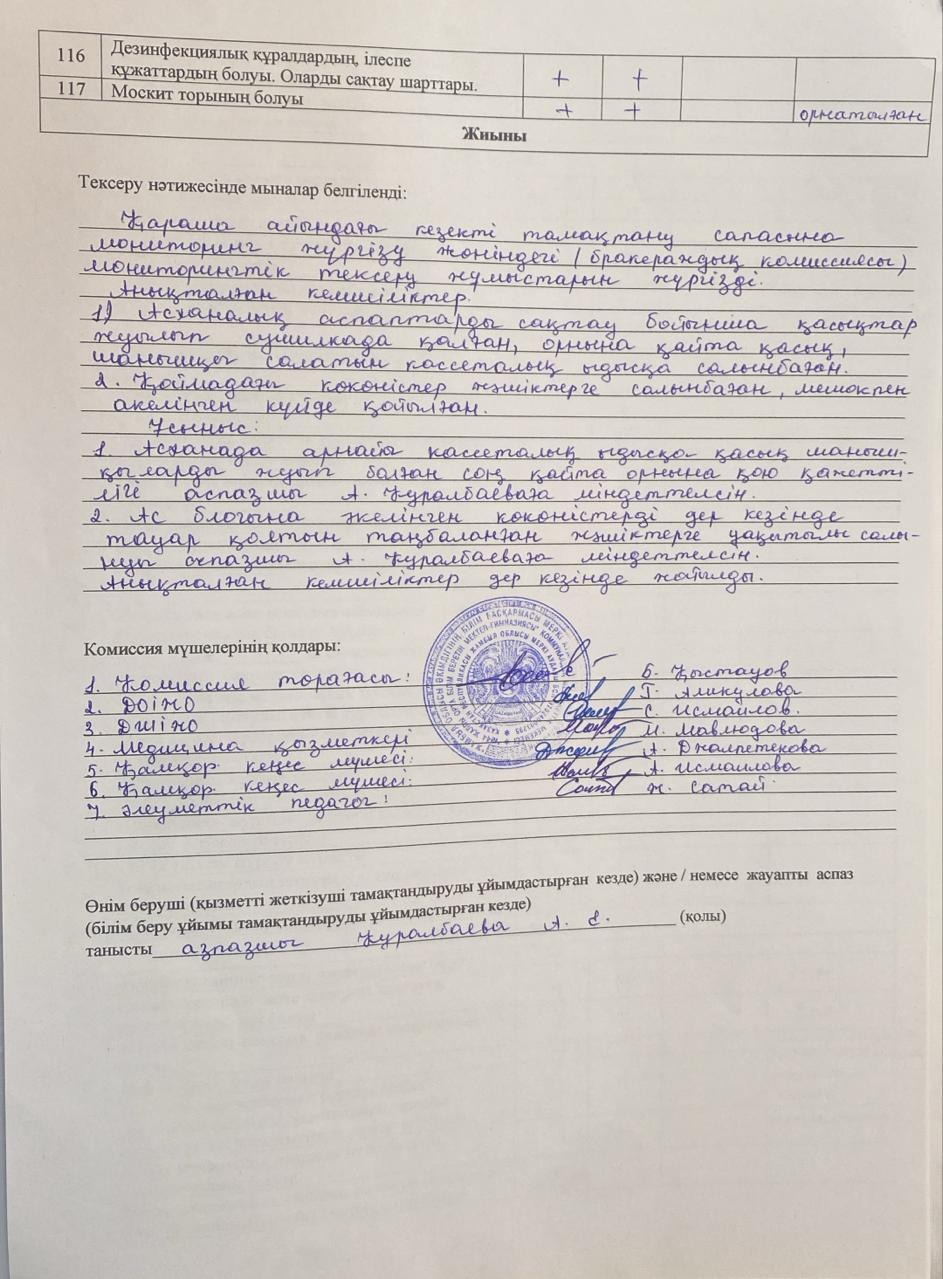 116 Дезинфекциялық құралдардың, ілеспе
құжаттардың болуы. Оларды сақтау шарттары. + +
117 Москит торының болуы + + орнатылған
Жиыны
Тексеру нәтижесінде мыналар белгіленді:
Қараша айындағы кезекті тамақтану сапасына
мониторинг жүргізу жөніндегі (бракераждық комиссиясы)
мониторингтік тексеру жұмыстарын жүргізді.
Анықталған кемшіліктер.
1) Асханалық аспаптарды сақтау бойынша қасықтар
жуылып сушилкада қалған, орнына қайта қасық,
шанышқы салатын кассеталық ыдысқа салынбаған.
2. Қоймадағы көкөністер жәшіктерге салынбаған, мешокпен
акелінген күйде қойылған.
Ұсыныс:
1. Асханада арнайы кассеталық ыдысқа қасық шаныш-
қыларды жуып болған соң қайта орнына қою қажетті-
лігі аспазшы А. Құралбаеваға міндеттелсін.
2. Ас блогына әкелінген көкөністерді дер кезінде
тауар қолтын таңбаланған жәшіктерге уақытылы салы-
нуы аспазшы А. Құралбаеваға міндеттелсін.
Анықталған кемшіліктер дер кезінде жойылды.
Комиссия мүшелерінің қолдары:
1. Комиссия төрағасы: Б. Қыстауов
2. ДОІЖО Г. Аликулова
3. ДШІЖО С. Исмаилов.
4. Медицина қызметкері М. Мавлюдова
5. Қамқор кеңес мүшесі: А. Джаппетекова
6. Қамқор кеңес мүшесі: А. Исмаилова
7. Әлеуметтік педагог: Ж. Сатай
Өнім беруші (қызметті жеткізуші тамақтандыруды ұйымдастырған кезде) және / немесе жауапты аспаз
(білім беру ұйымы тамақтандыруды ұйымдастырған кезде)
танысты азпазшы Құралбаева А. Е. (қолы)